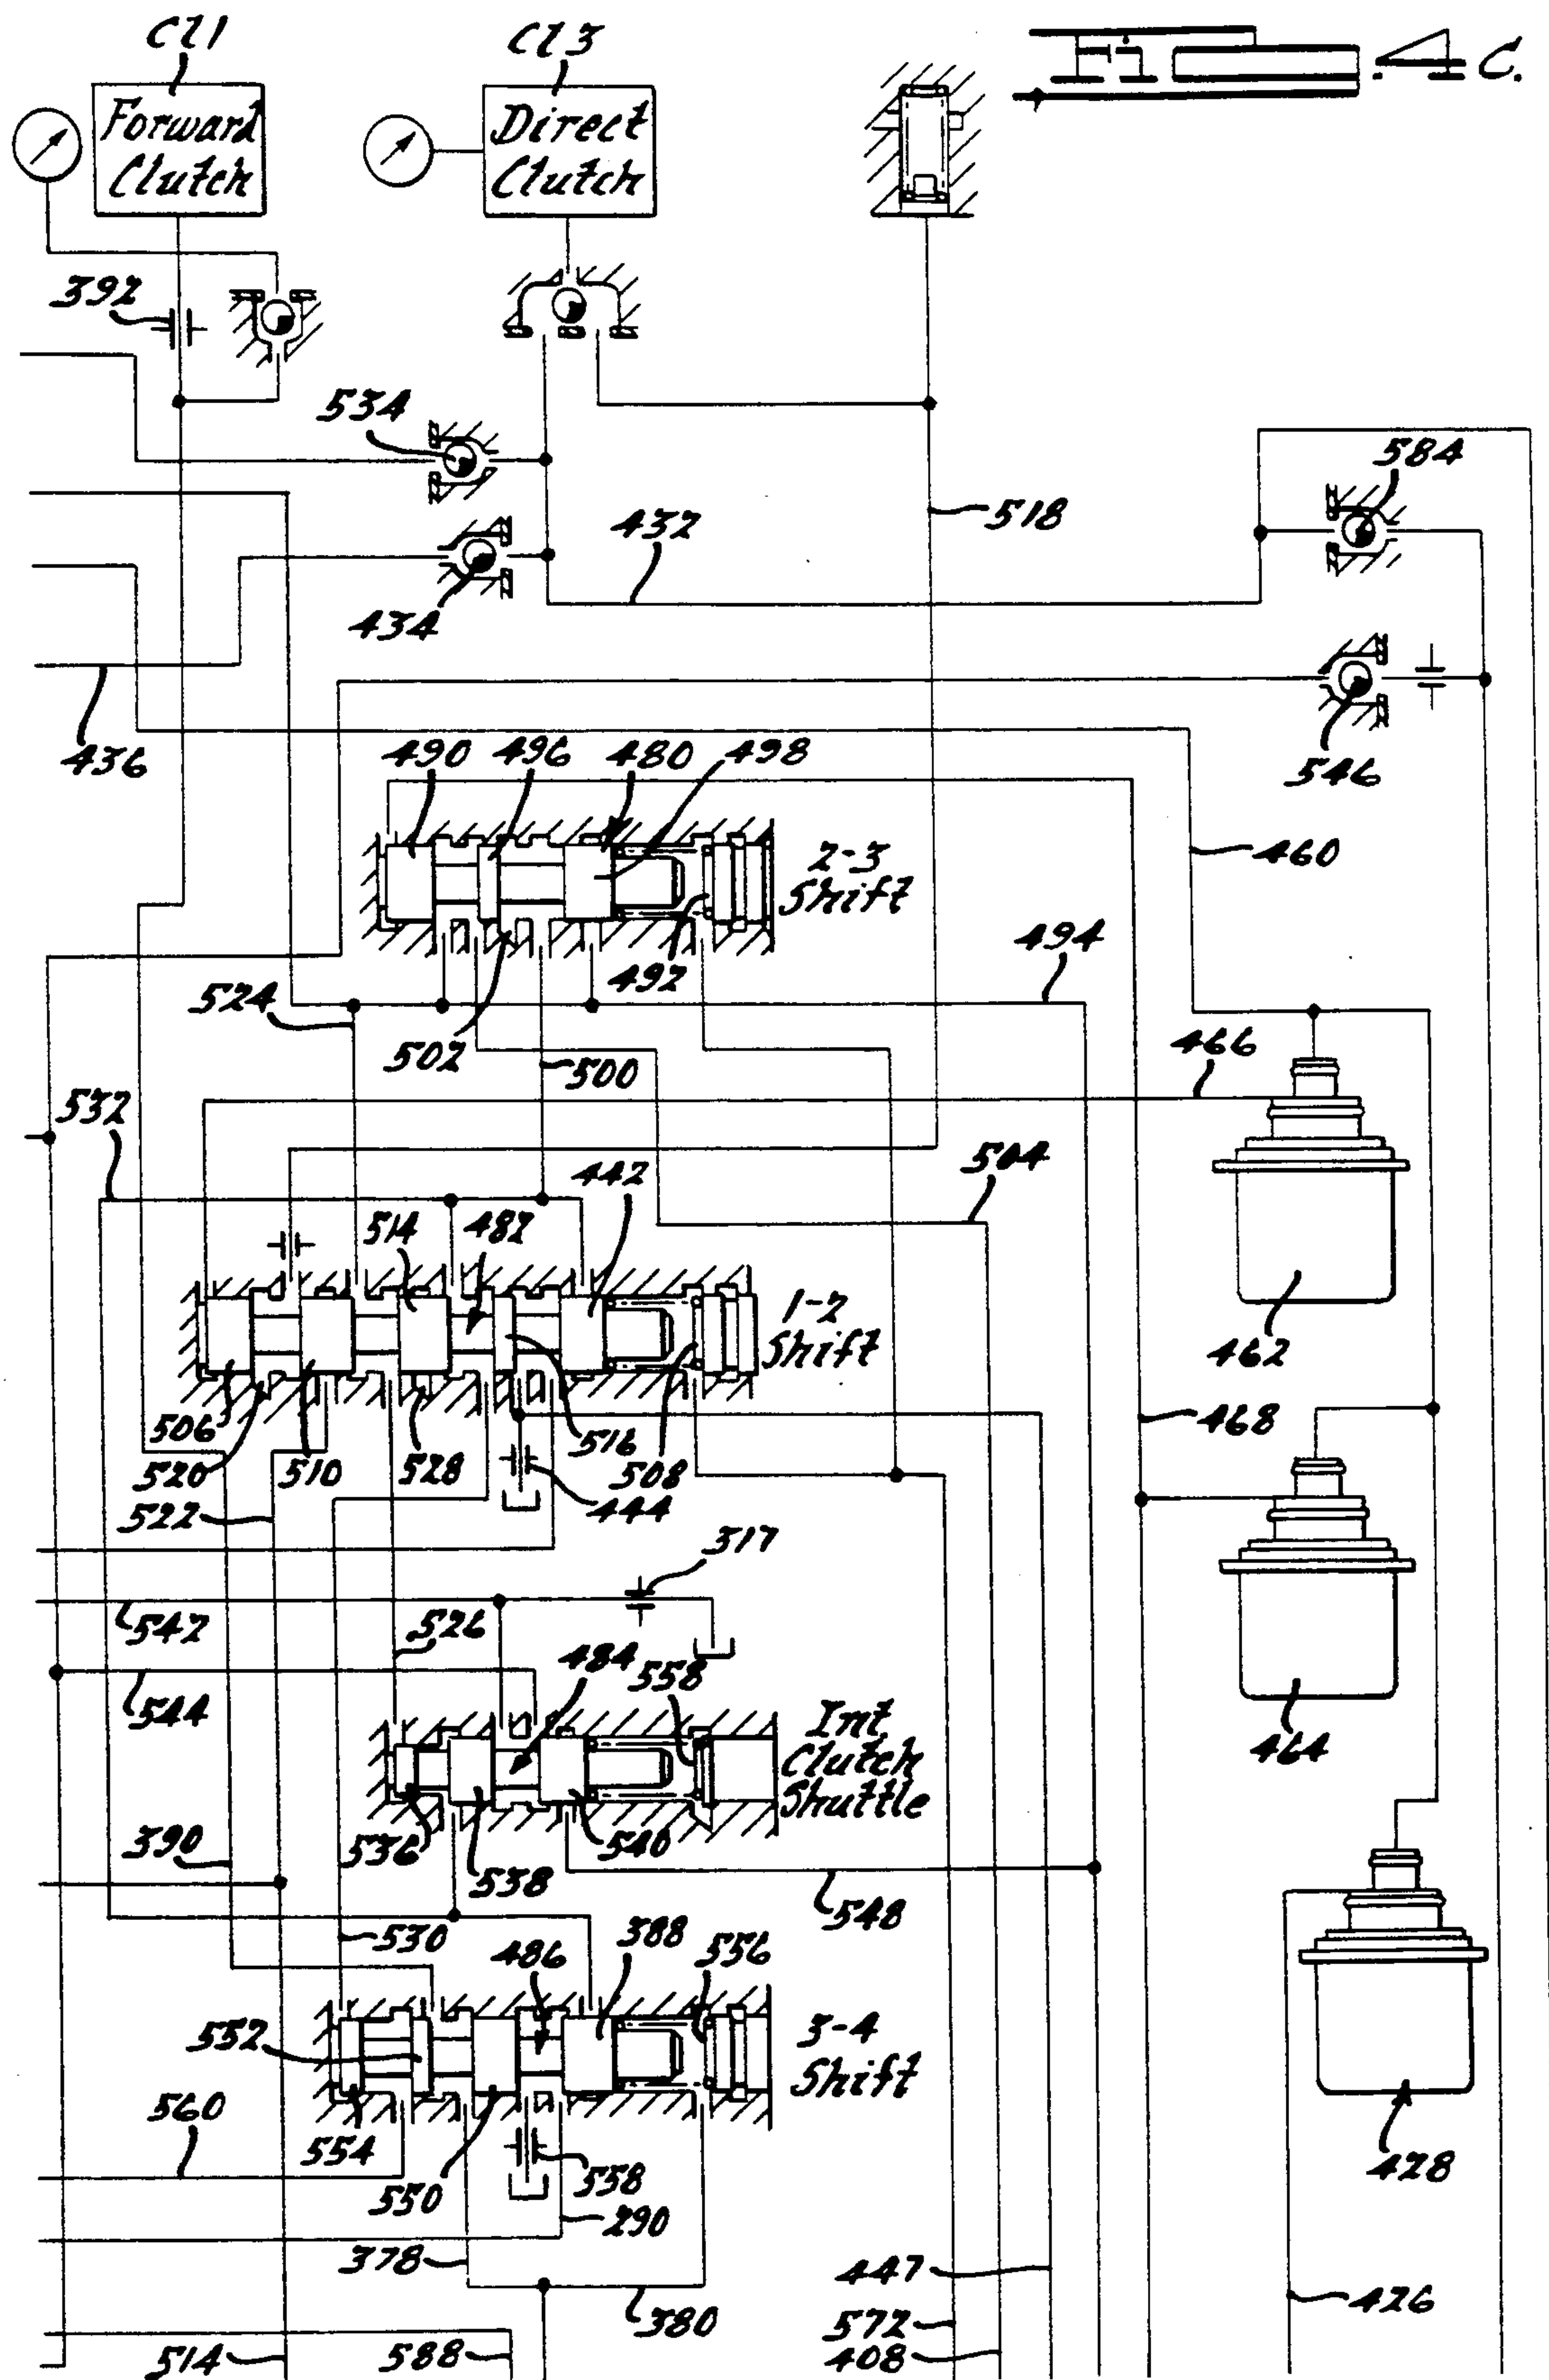 CL1
CL3
Fig. 4C.
Forward
Clutch
Direct
Clutch
392
534
584
518
432
434
436
546
490
496
480
498
2-3
Shift
460
492
494
524
502
500
466
532
504
442
514
482
1-2
Shift
462
506
520
510
528
516
508
468
522
444
317
542
526
484
558
544
Int.
Clutch
Shuttle
464
390
536
538
540
548
530
486
388
556
552
3-4
Shift
560
554
550
558
428
290
378
447
426
380
572
514
588
408